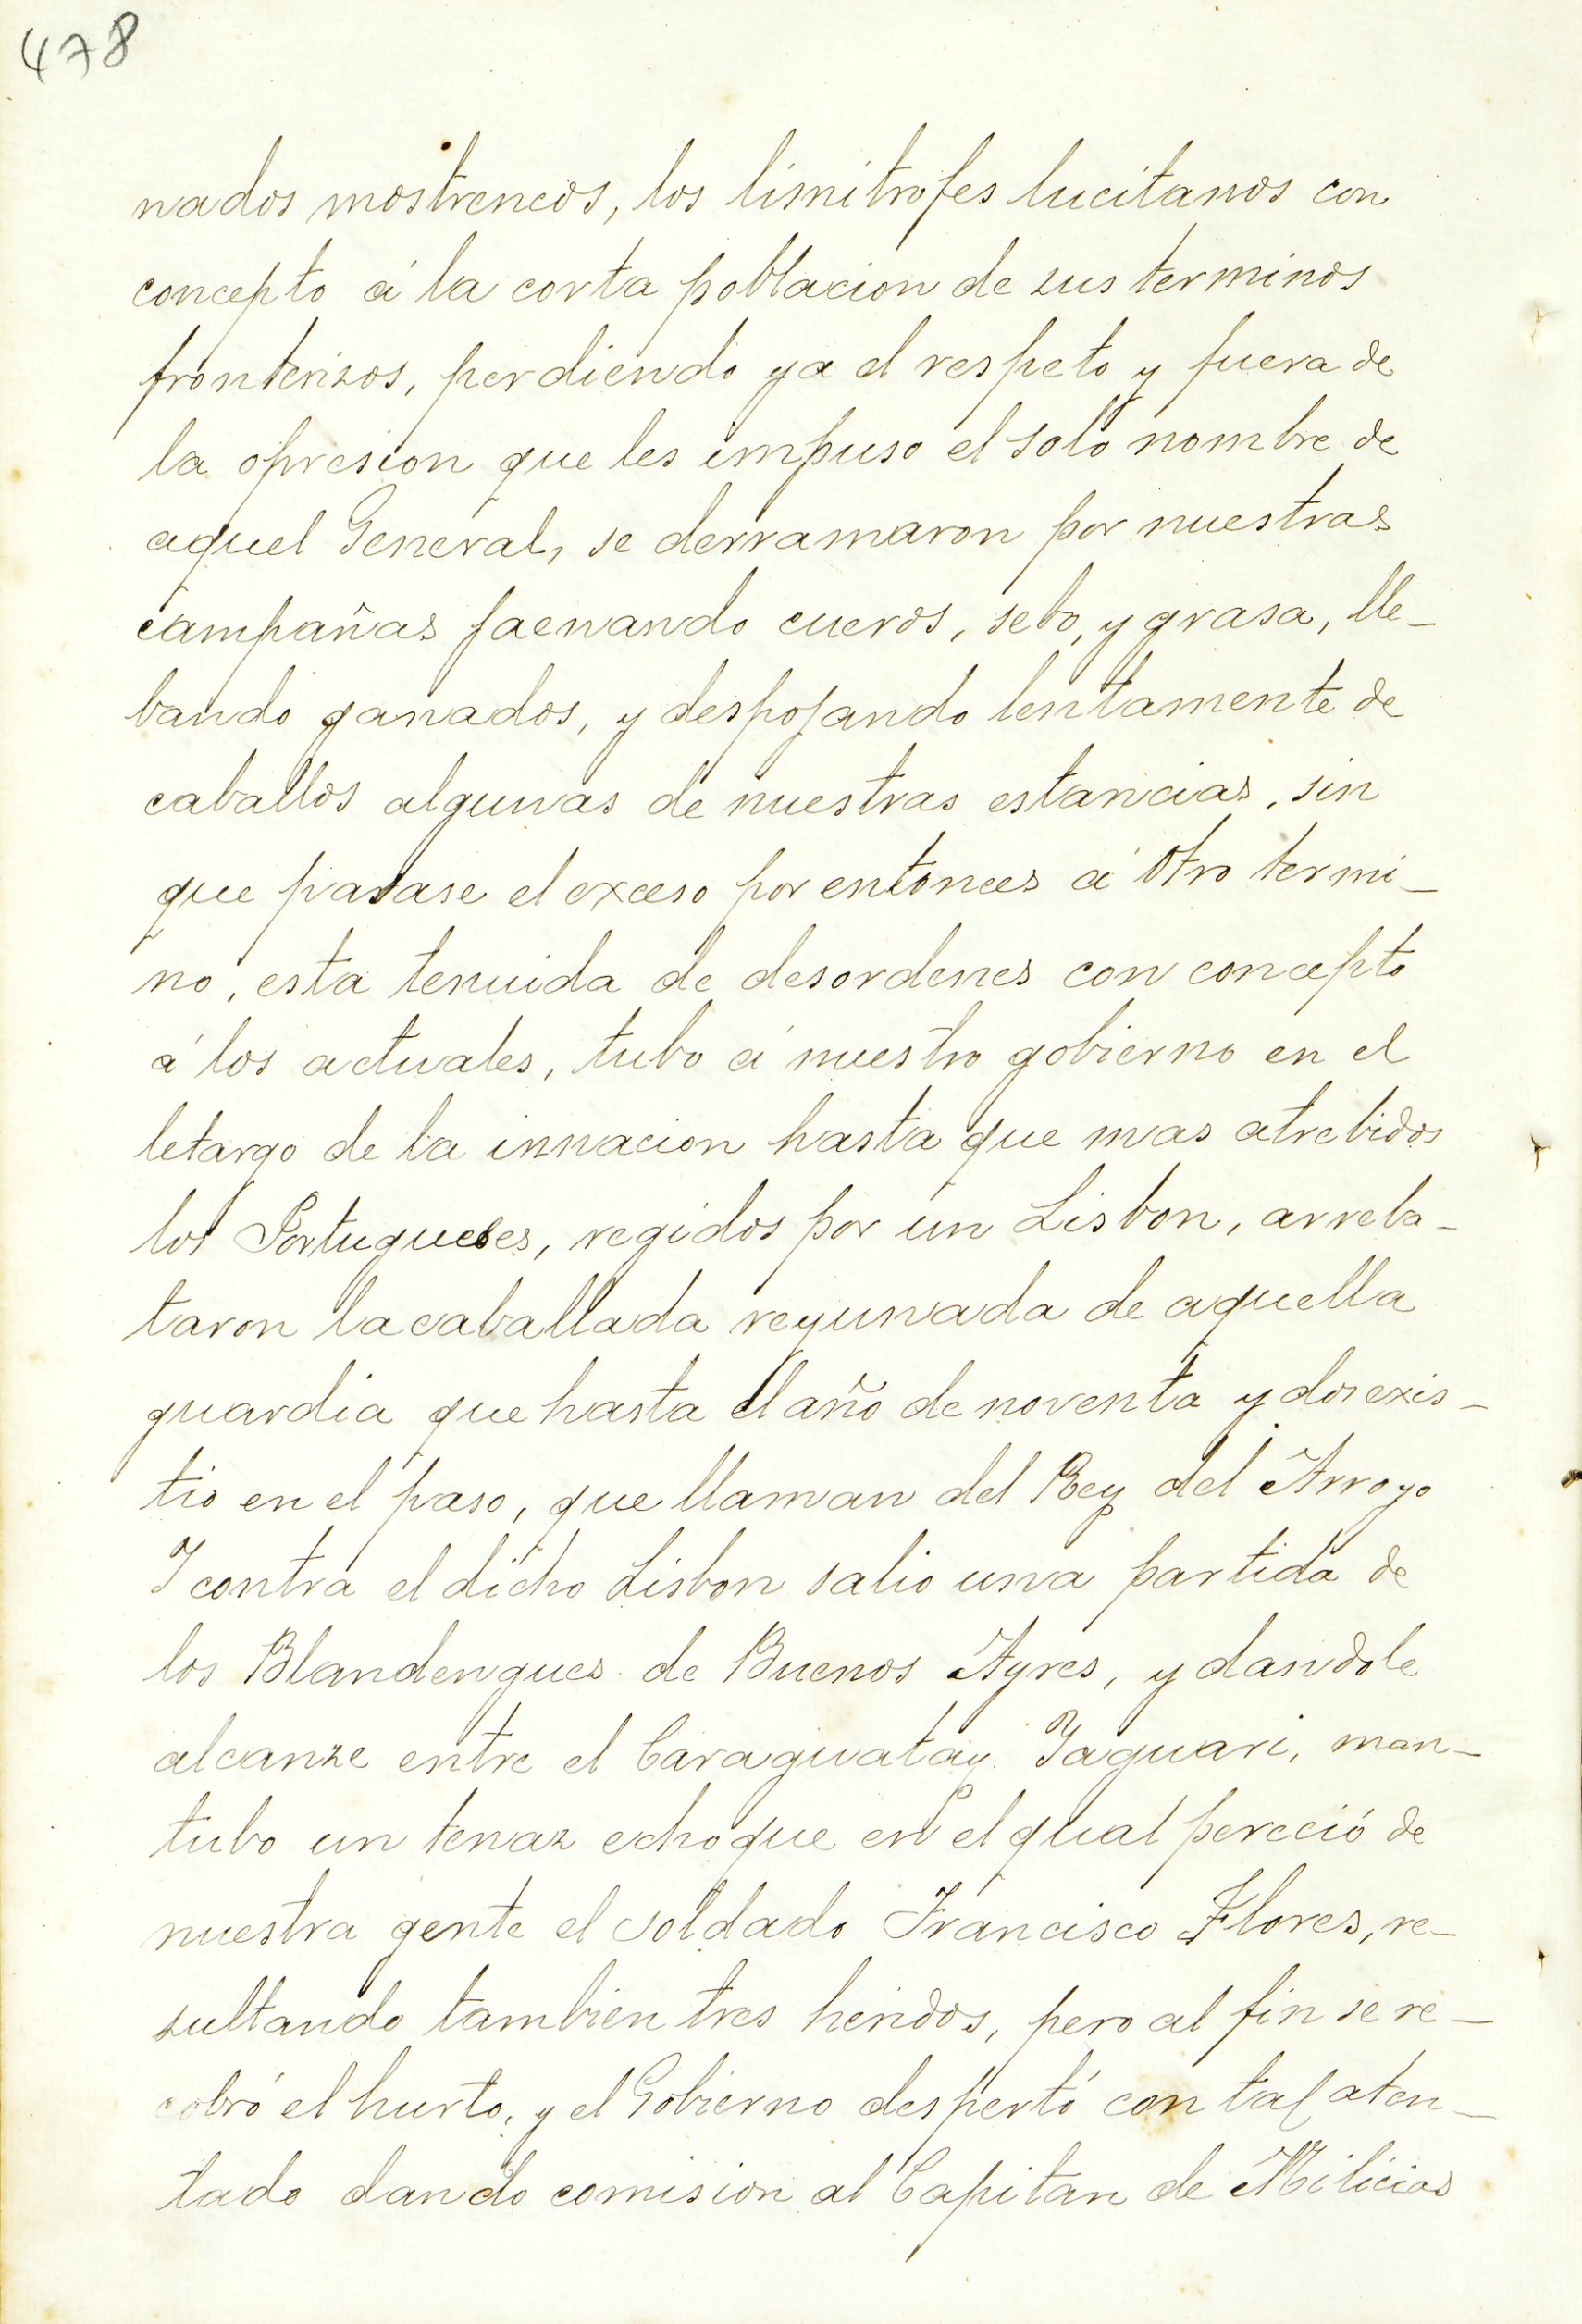 478
nados mostrencos, los limitrofes lucitanos con
concepto á la corta poblacion de sus terminos
fronterisos, perdiendo ya el respeto y fuera de
la opresion que les impuso el solo nombre de
aquel General, se derramaron por nuestras
campañas faenando cueros, sebo, y grasa, lle-
bando ganados, y despojando lentamente de
caballos algunas de nuestras estancias, sin
que pasase el exceso por entonces á otro termi-
no, esta tenuida de desordenes con concepto
á los actuales, tubo á nuestro gobierno en el
letargo de la innacion hasta que mas atrebidos
los Portugueses, regidos por un Lisbon, arreba-
taron la caballada reyunada de aquella
guardia que hasta el año de noventa y dos exis-
tio en el paso, que llaman del Rey del Arroyo
Y contra el dicho Lisbon salio una partida de
los Blandengues de Buenos Ayres, y dandole
alcanze entre el Caraguatay Yaguari, man-
tubo un tenaz echoque en el qual pereció de
nuestra gente el soldado Francisco Flores, re-
sultando tambien tres heridos, pero al fin se re-
cobró el hurto, y el Gobierno despertó con tal aten-
tado dando comision al Capitan de Milicias